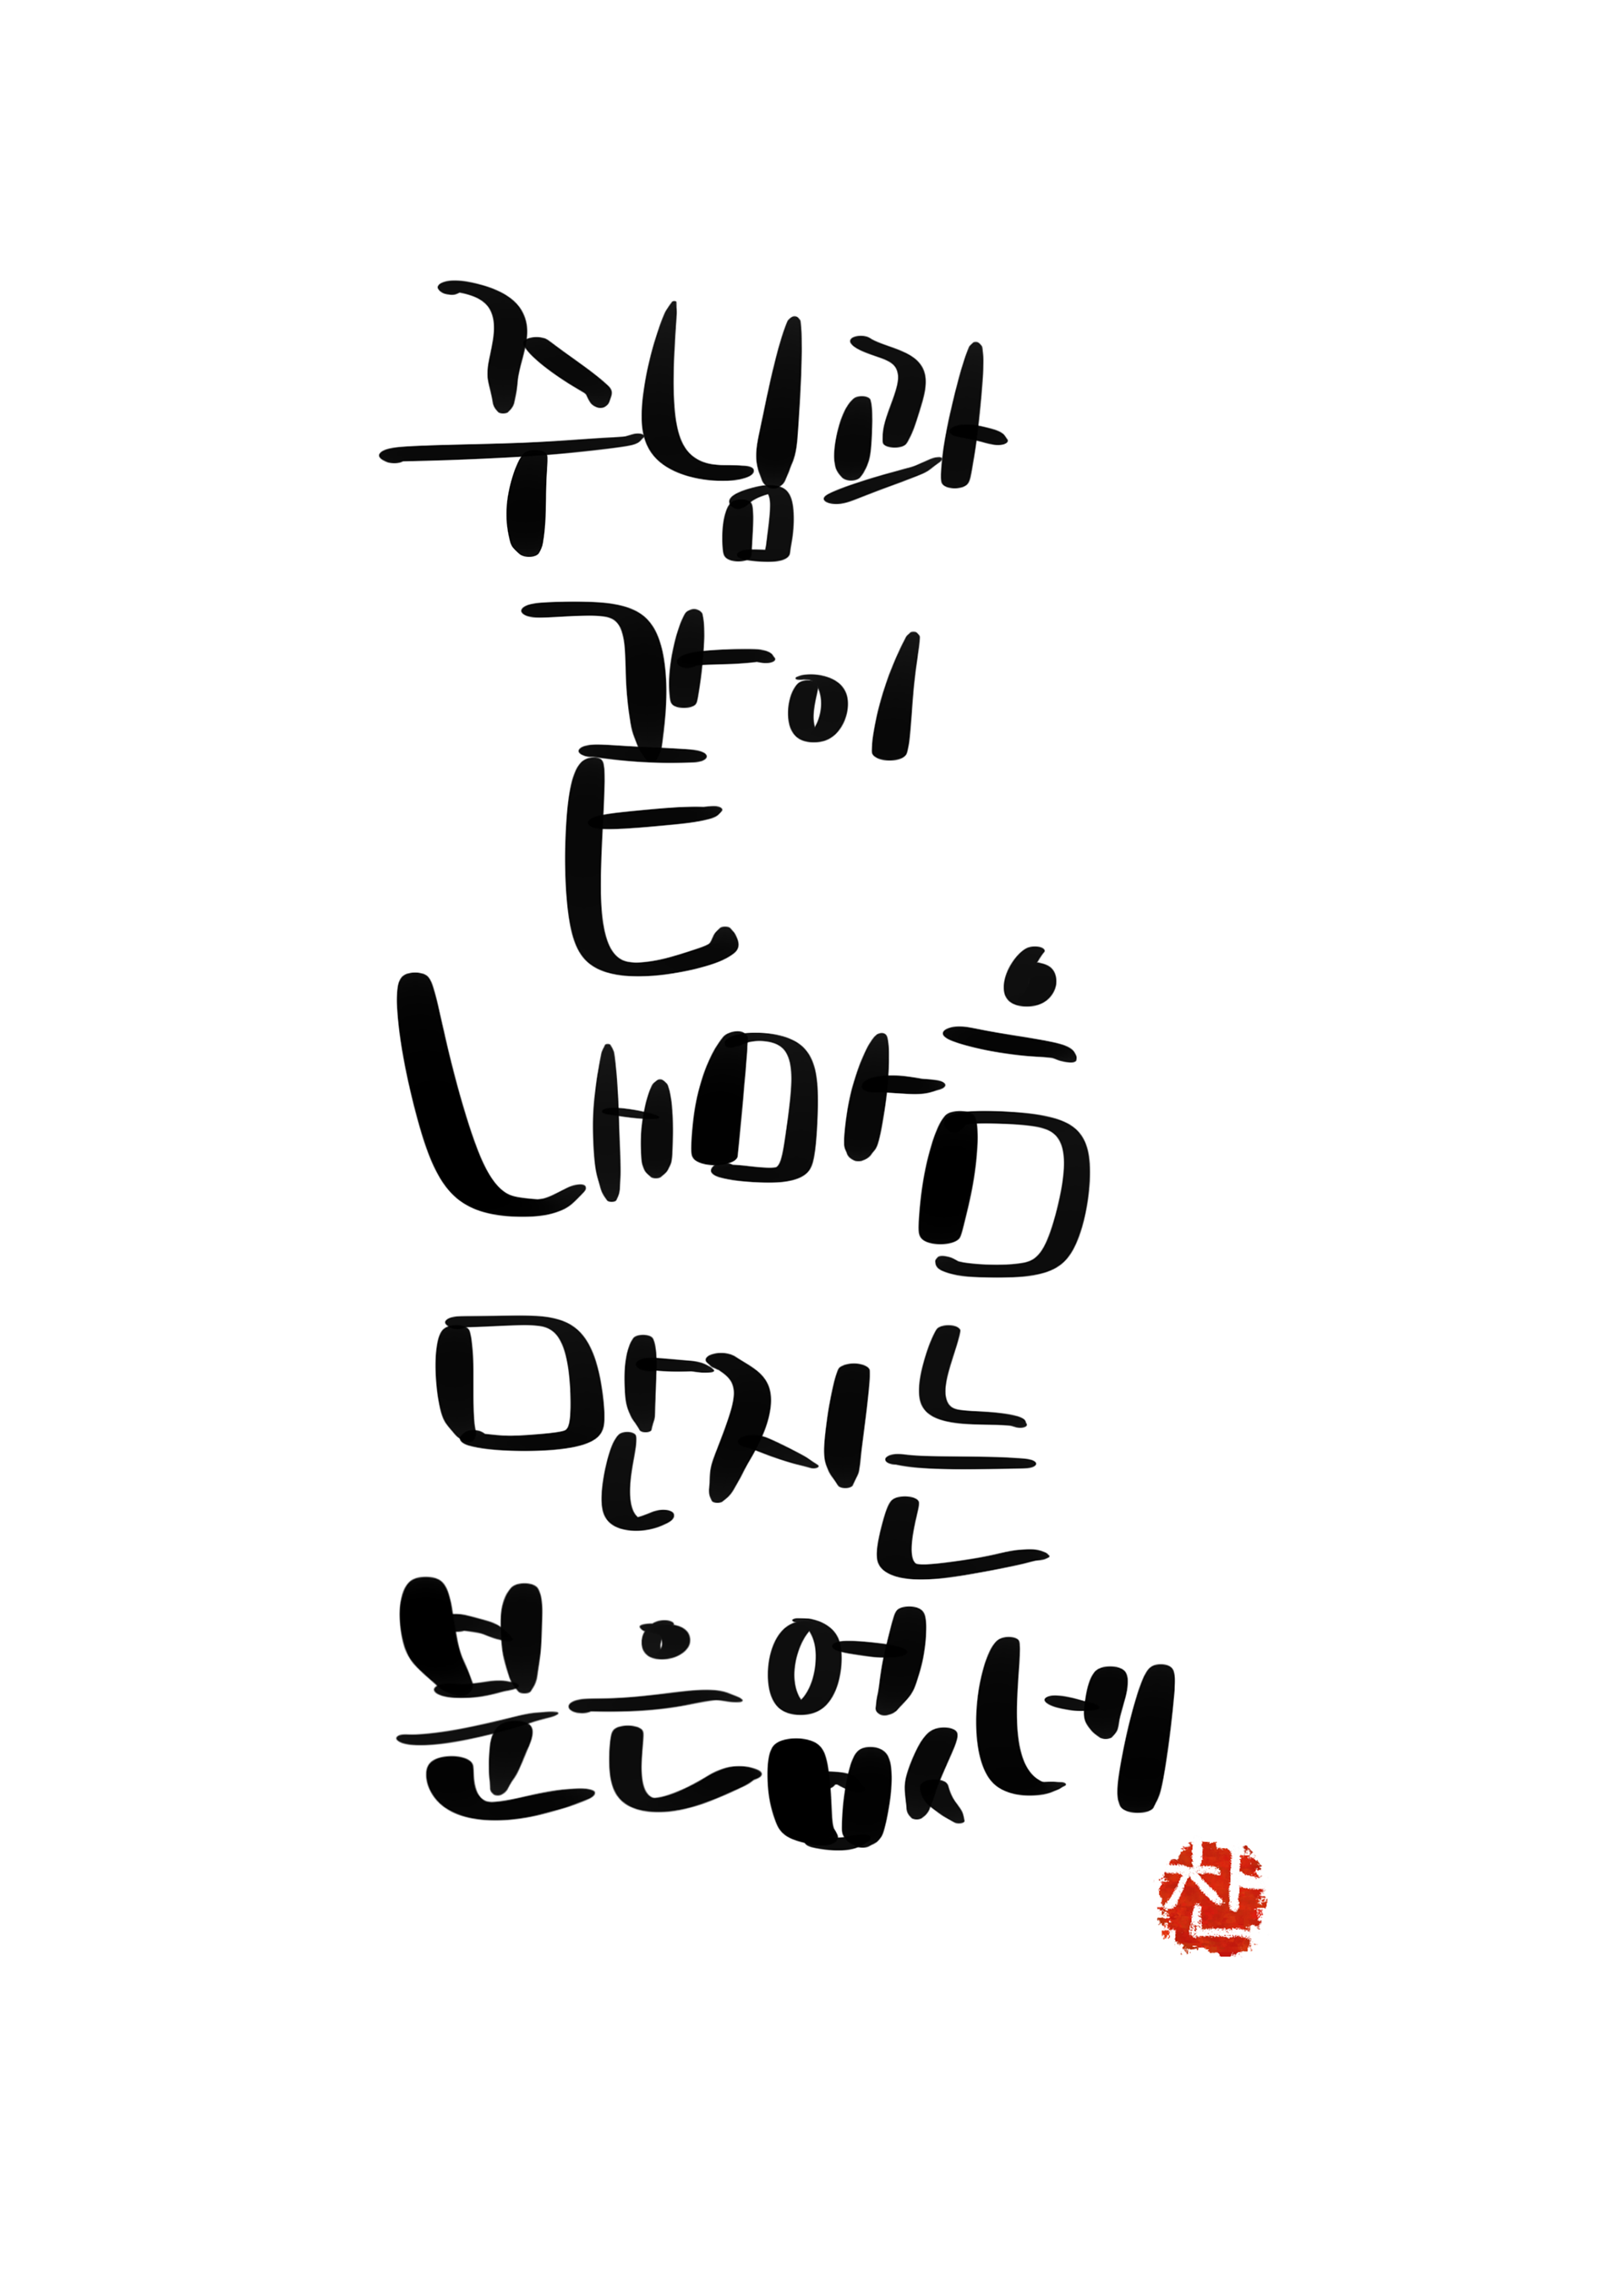 주님과
같이
내마음
만지는
분은없네
찬